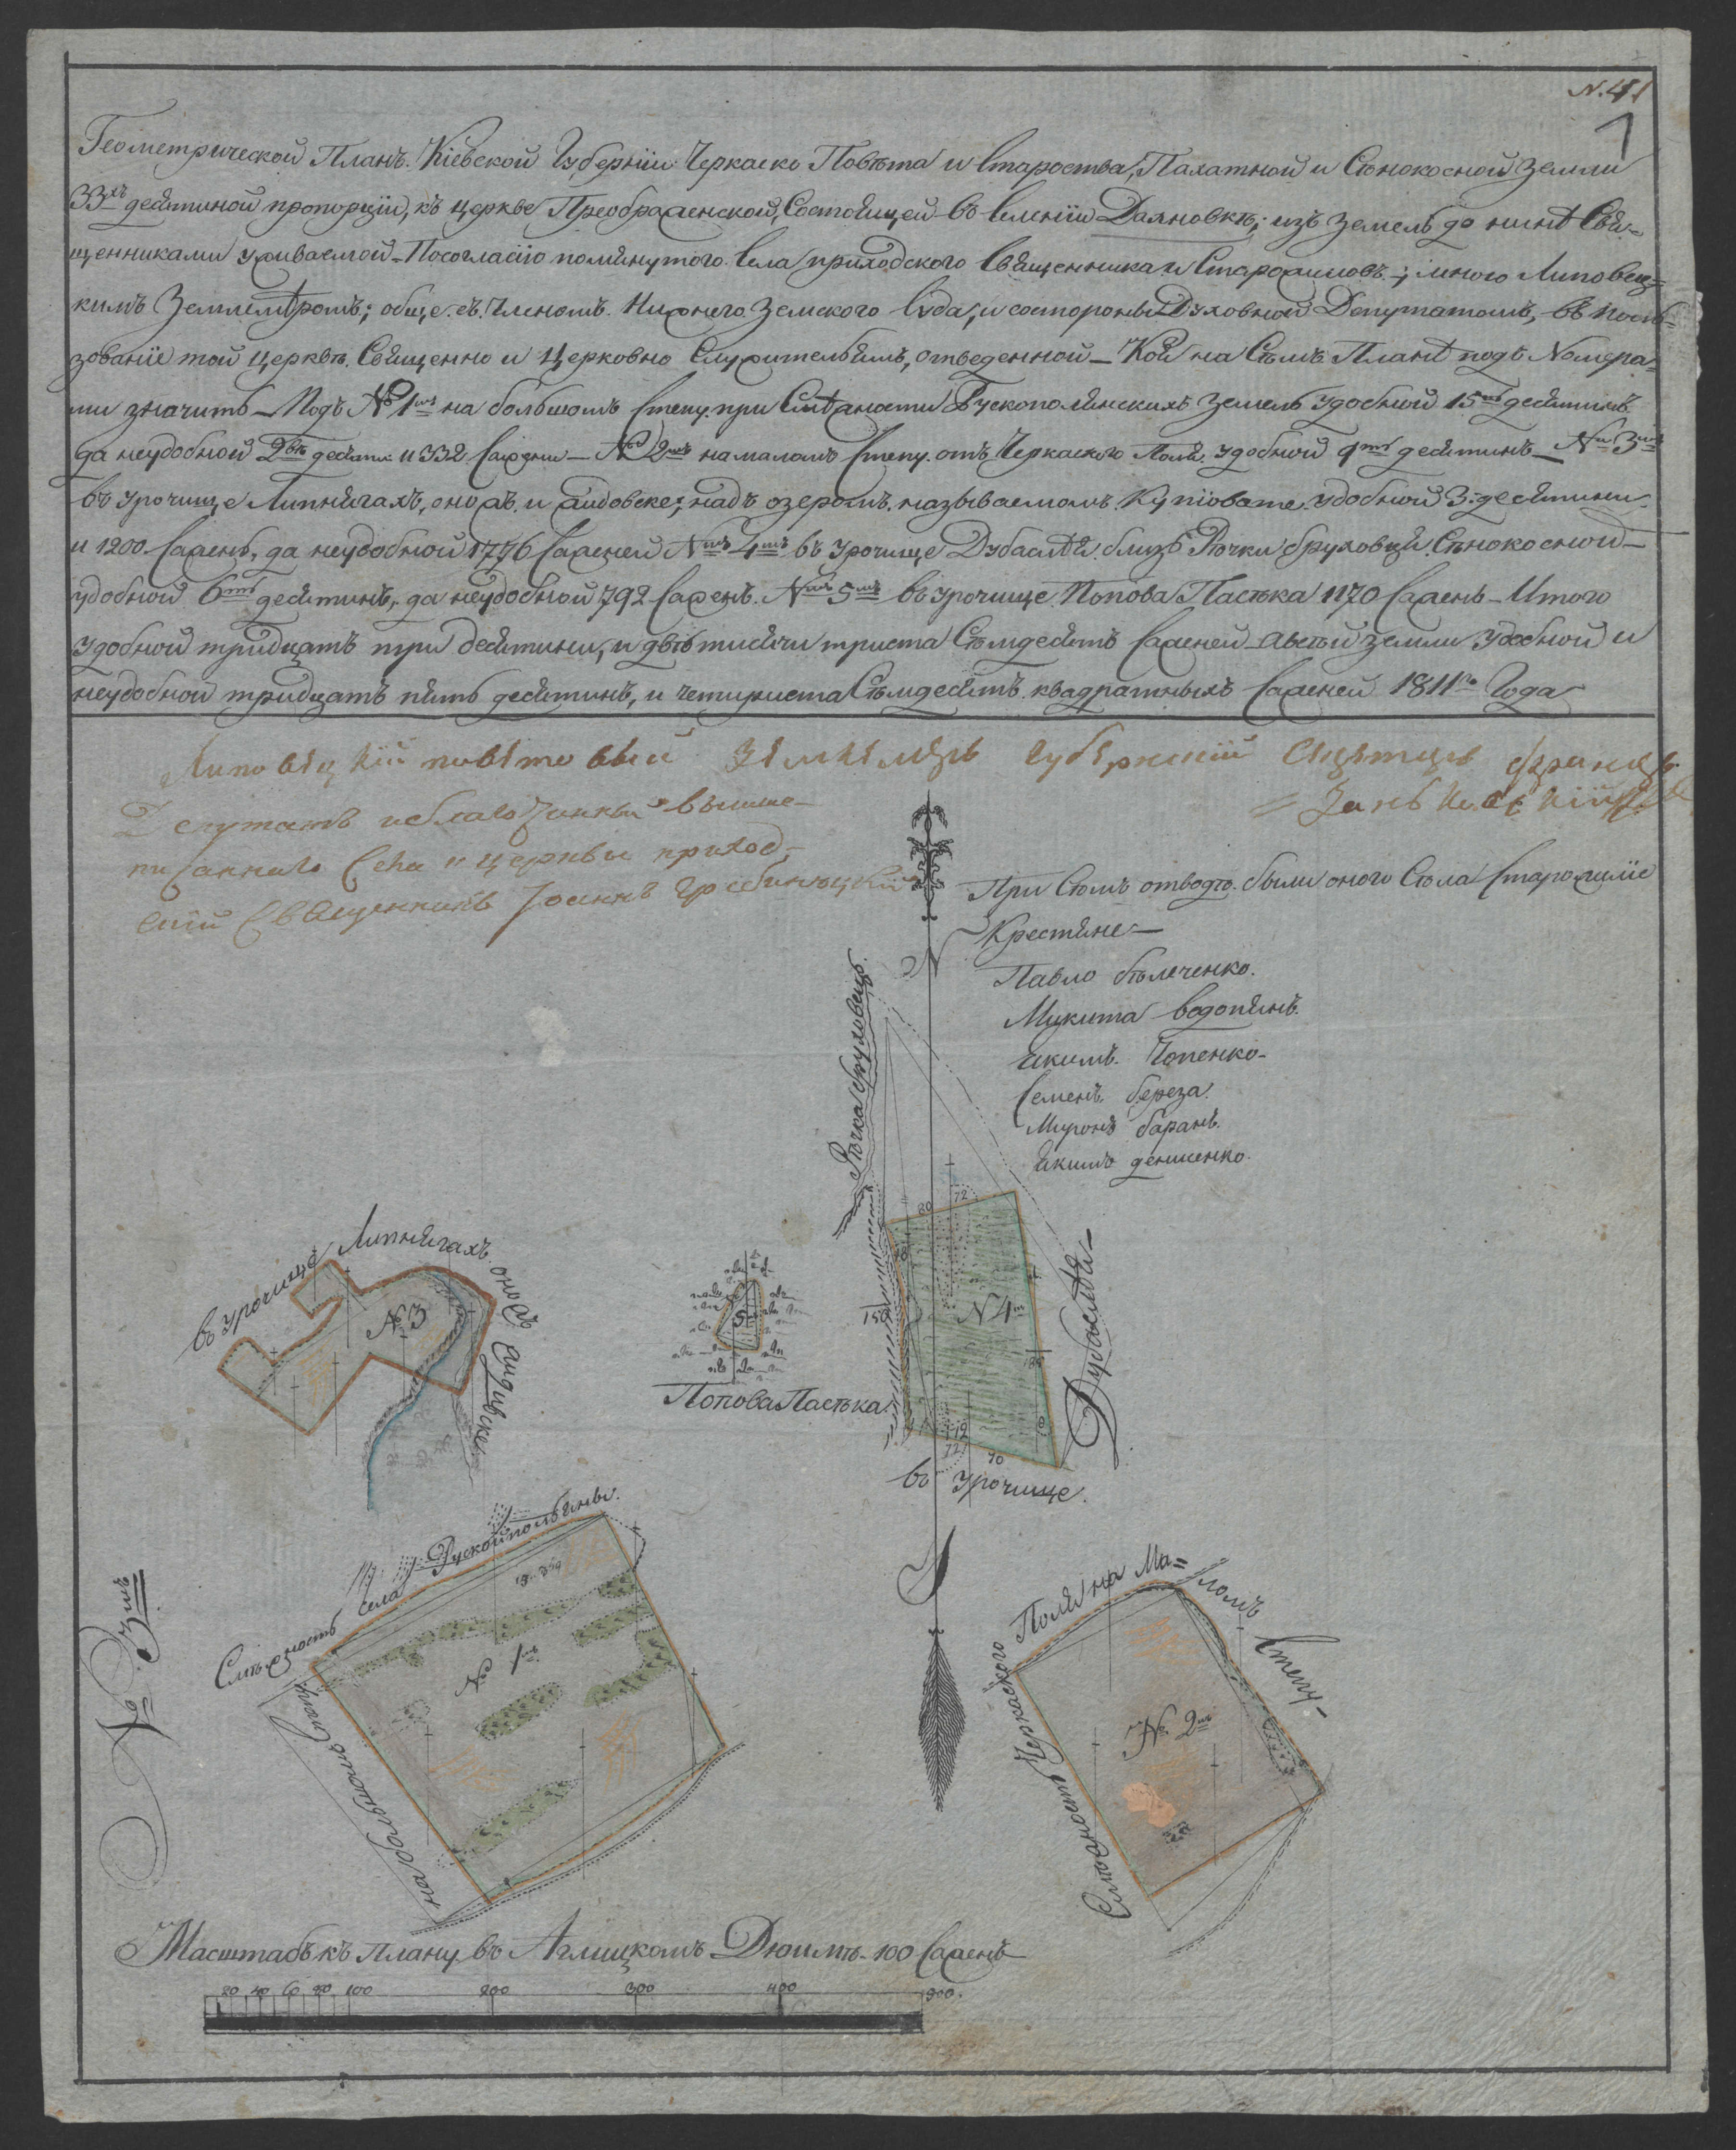 N. 41
1
Геометрической Планъ. Кіевской Губерніи Черкаско Повѣта и Староства, Пахатной и Сѣнокосной земли
33хъ десятиной пропорціи, къ церкве Преображенской, Состоящей въ Селеніи Даяновкѣ; изъ земель до нинѣ Свя=
щенниками уживаемой - Посогласію помянутого Села приходского Священника и Старожиловъ -; мною Липовец=
кимъ Землемѣромъ; обще. съ. Членомъ. Нижнего Земского Суда, и состороны Духовной Депутатомъ, въ поль=
зованіе той Церквѣ. Священно и Церковно Служительямъ, отведенной - Кой на Сѣмъ Планѣ подъ Номера=
ми значитъ - Подъ №, 1мъ на большомъ Степу. при Смѣжности Рускополянскихъ Земель Удобной 15ть десятинъ
да неудобной 2вѣ десяти: и 332 Сажени - № 2мъ на маломъ Степу. отъ Черкаского Поля. удобной 9ть десятинъ - № 3мъ
въ урочище Липнягахъ, оножъ. и Жидовске; надъ озеромъ. называемомъ. Купіовате. удобной 3: десятини
и 1200. Сажень, да неудобной 1776 Саженей №мъ 4мъ въ урочище Дубасмѣй близъ Рѣчки бруховци. Сѣнокосной -
удобной 6ть десятинъ, да неудобной 792 Сажень. №мъ 5мъ въ урочище Попова Пасѣка 1170 Сажень - Итого
удобной тридцать три десятини, и двѣ тисячи триста Сѣмдесятъ Саженей - авсѣй земли Удобной и
неудобной тридцать пять десятинъ, и четириста Сѣмдесятъ. квадратныхъ Саженей 1811го Года
Липовецкій повѣтовый Землемѣръ Губернскій Францъ
Депутатъ и благочинный више-
писаннаго Села и церквы приход-
скій Священникъ Іоаннъ
При Сѣмъ отводѣ. были оного Сѣла Старожиліе
Крестяне -
Павло бѣлеченко.
Микита водопянъ.
Якимъ. Чопенко -
Семенъ. береза.
Миронъ баранъ.
Якимъ денисенко.
N
Рѣчка бруховецъ.
въ урочище Липнягахъ. оножъ Жидивске.
№ 3
5
Попова Пасѣка
80 72
18
150
N 4м
185
12
72
90
8
въ урочище.
Дубасмѣй -
S
Смѣжность села Рускойпольяны.
№ 1мъ
на большомъ Степу
Смѣжности Черкаского Поля на Ма=
ломъ Степу -
№ 2мъ
№ 3мъ
Масштабъ къ Плану. въ Аглицкомъ Дюимѣ. 100 Сажень
20 40 60 80 100 200 300 400 500.